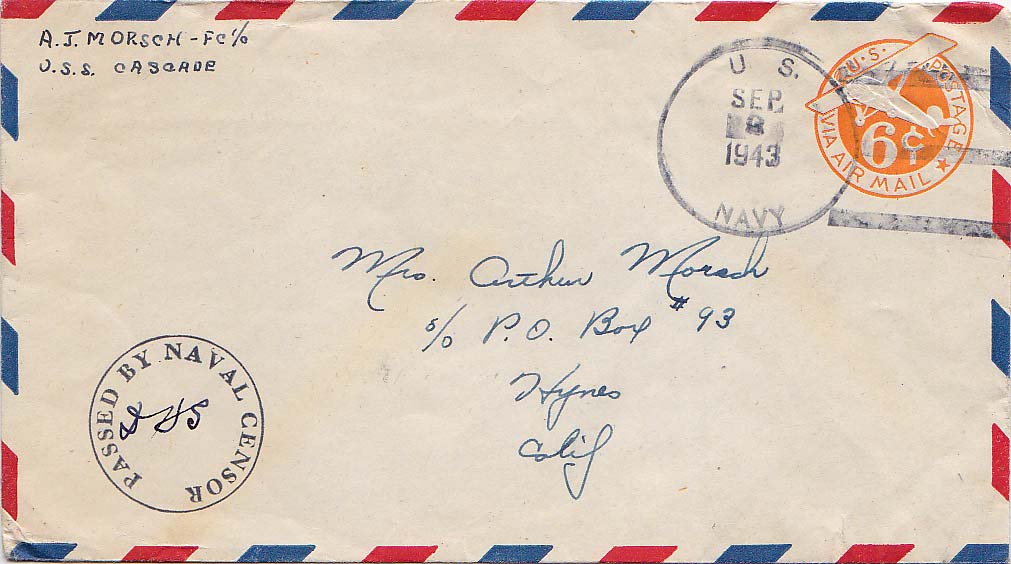 A.J. MORSCH - FC 1/c
U.S.S. CASCADE
U. S.
SEP
8
1943
NAVY
U.S. POSTAGE
6¢
VIA AIR MAIL
Mrs. Arthur Morsch
c/o P.O. Box #93
Hynes
Calif
PASSED BY NAVAL CENSOR